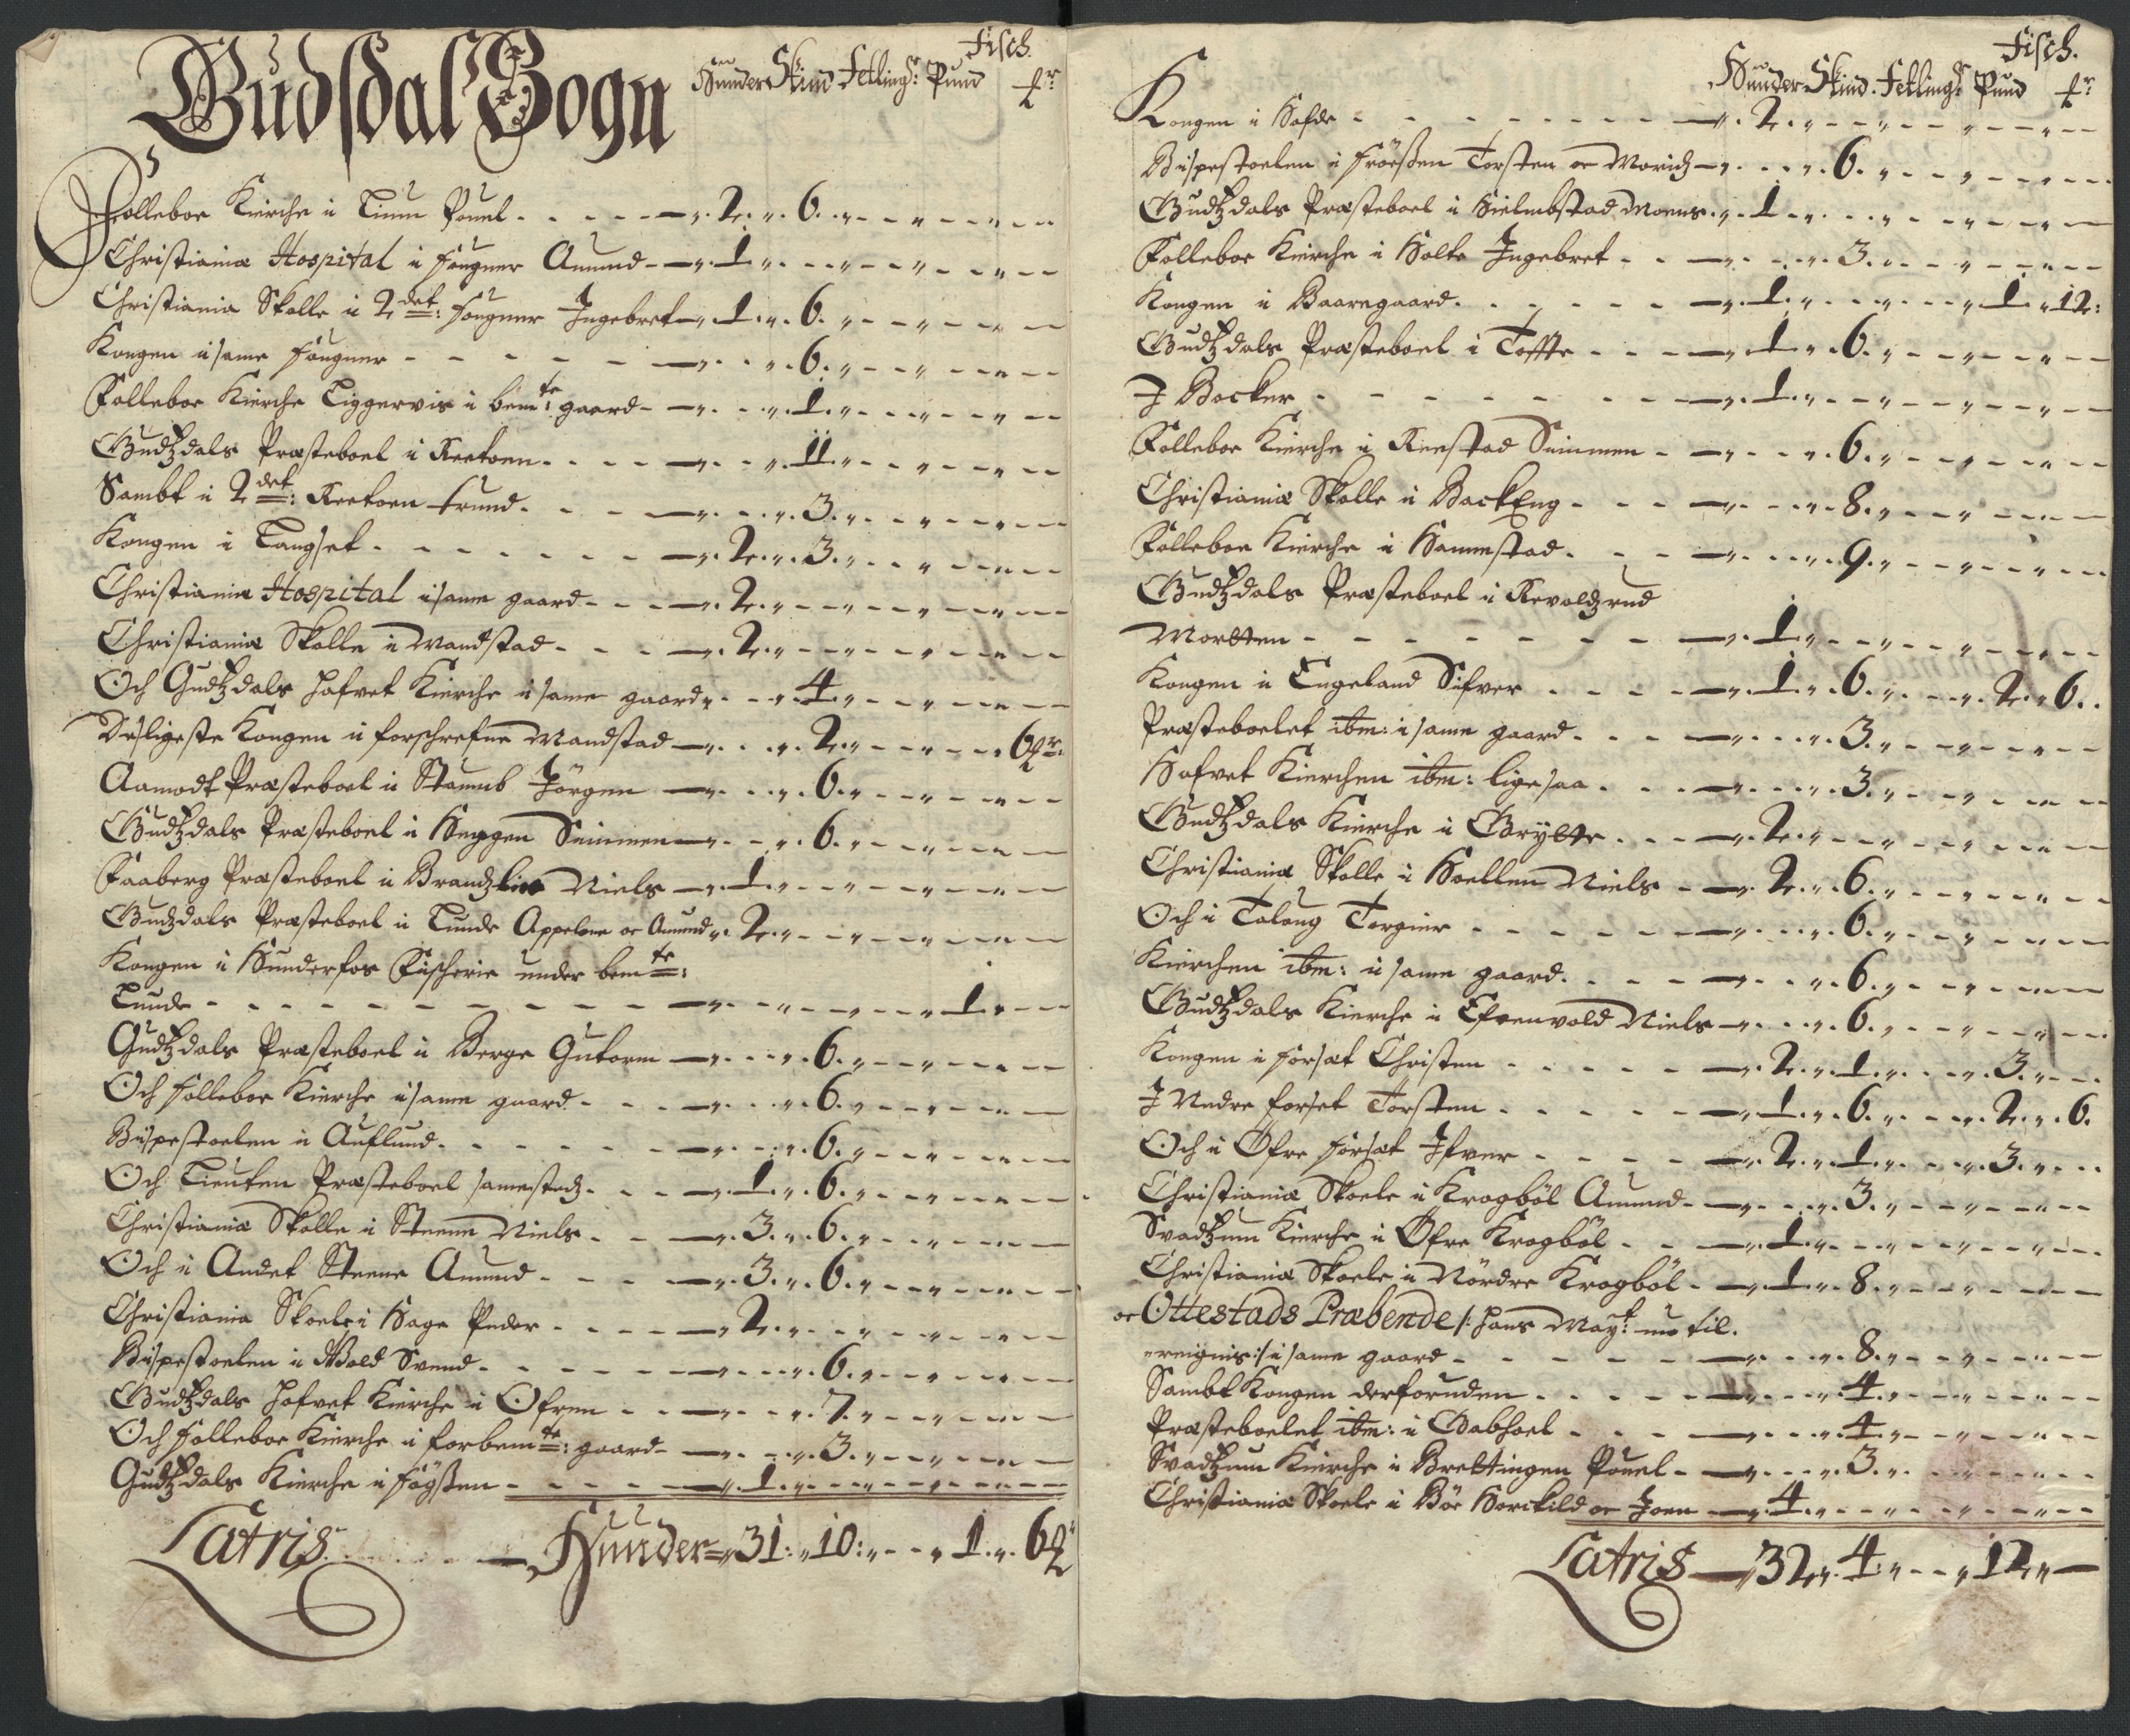 Fisch.
Gudsdal Sogn Hunder Skind Fetling: Pund ℔r
Folleboe Kierche i Linn Pouel - 2 „ 6 „
Christiania Hospital i Fougner Amund - 1 „
Christiania Skolle i 2det: Fougner Ingebret - 1 „ 6 „
Kongen i same Fougner - „ 6 „
Folleboe Kierche Liggervis i bemte: gaard - „ 1 „
Gudtzdals Præsteboel i Reetoen - „ 11 „
Sambt i 2det: Reetoen Trund - „ 3 „
Kongen i Langset - 2 „ 3 „
Christiania Hospital i same gaard - 2 „
Christianiæ Skolle i Mandstad - 2 „
Och Gudtzdals Hofvet Kierche i same gaard - „ 4 „
Disligeste Kongen i forschrefne Mandstad - „ 2 „ 6 ℔r:
Aamodt Præsteboel i Stamb Jörgen - „ 6 „
Gudtzdals Præsteboel i Heggen Simmen - „ 6 „
Faaberg Præsteboel i Brandzlie Niels - 1 „
Gudzdals Præsteboel i Lunde Appelone oc Amund - 2 „
Kongen i Hunderfos Fischerie under bemte:
Lunde - „ 1 „
Gudtzdals Præsteboel i Berge Gutorm - „ 6 „
Och Folleboe Kierche i same gaard - „ 6 „
Bispestoelen i Auflund - „ 6 „
Och Lieuten Præsteboel samestedz - 1 „ 6 „
Christianiæ Skolle i Steene Niels - 3 „ 6 „
Och i Andet Steene Amund - 3 „ 6 „
Christiania Skoele i Hage Peder - 2 „
Bispestoelen i Vold Svend - „ 6 „
Gudtzdals Hofvet Kierche i Ofren - „ 7 „
Och Folleboe Kierche i forbemte: gaard - „ 3 „
Gudtzdals Kierche i Föyßen - 1 „
Latris - Hunder „ 31: „ 10: „ - „ 1 „ 6 ℔
Fisch.
Hunder Skind. Fetling: Pund ℔r:
Kongen i Hofde - 2 „
Bispestoelen i Fröeßen Torsten oc Moridz - „ 6 „
Gudtzdals Præsteboel i Hielmbstad Moens - 1 „
Folleboe Kierche i Holte Ingebret - „ 3 „
Kongen i Baaregaard - 1 „ 1 „ 12:
Gudtzdals Præsteboel i Toffte - 1 „ 6 „
I Böcker - 1 „
Folleboe Kierche i Reestad Simmen - „ 6 „
Christianiæ Skolle i BackEng - „ 8 „
Folleboe Kierche i Hammestad - „ 9 „
Gudtzdals Præsteboel i Revoldzrud
Mortten - 1 „
Kongen i Engeland Sifver - 1 „ 6 „ 2 „ 6
Præsteboelet ibm: i same gaard - „ 3 „
Hofvet Kierchen ibm: lige saa - „ 3 „
Gudtzdals Kierche i Brÿtte - 2 „
Christianiæ Skolle i Hoellen Niels - 2 „ 6 „
Och i Taloug Torgier - „ 6 „
Kierchen ibm: i same gaard - „ 6 „
Gudtzdals Kierche i Efrenvold Niels - „ 6 „
Kongen i Forset Christen - 2 „ 1 „ 3 „
I Nedre Forset Torsten - 1 „ 6 „ 2 „ 6
Och i Öfre Forset Ifver - 2 „ 1 „ 3 „
Christianiæ Skoele i Krogböl Amund - „ 3 „
Svadtzum Kierche i Öfre Krogböl - 1 „
Christianiæ Skoele i Nördre Krogböl - 1 „ 8 „
oc Ottestads Præbende /: Hans Mayt: nu til.
ereignis :/ i same gaard - „ 8 „
Sambt Kongen derforuden - „ 4 „
Præsteboelet ibm: i Gabhoel - „ 4 „
Svadtzum Kierche i Brettingen Pouel - „ 3 „
Christianiæ Skoele i Böe Torckild oc Joen - 4 „
Latris - 32 „ 4 „ - „ 12 „ -